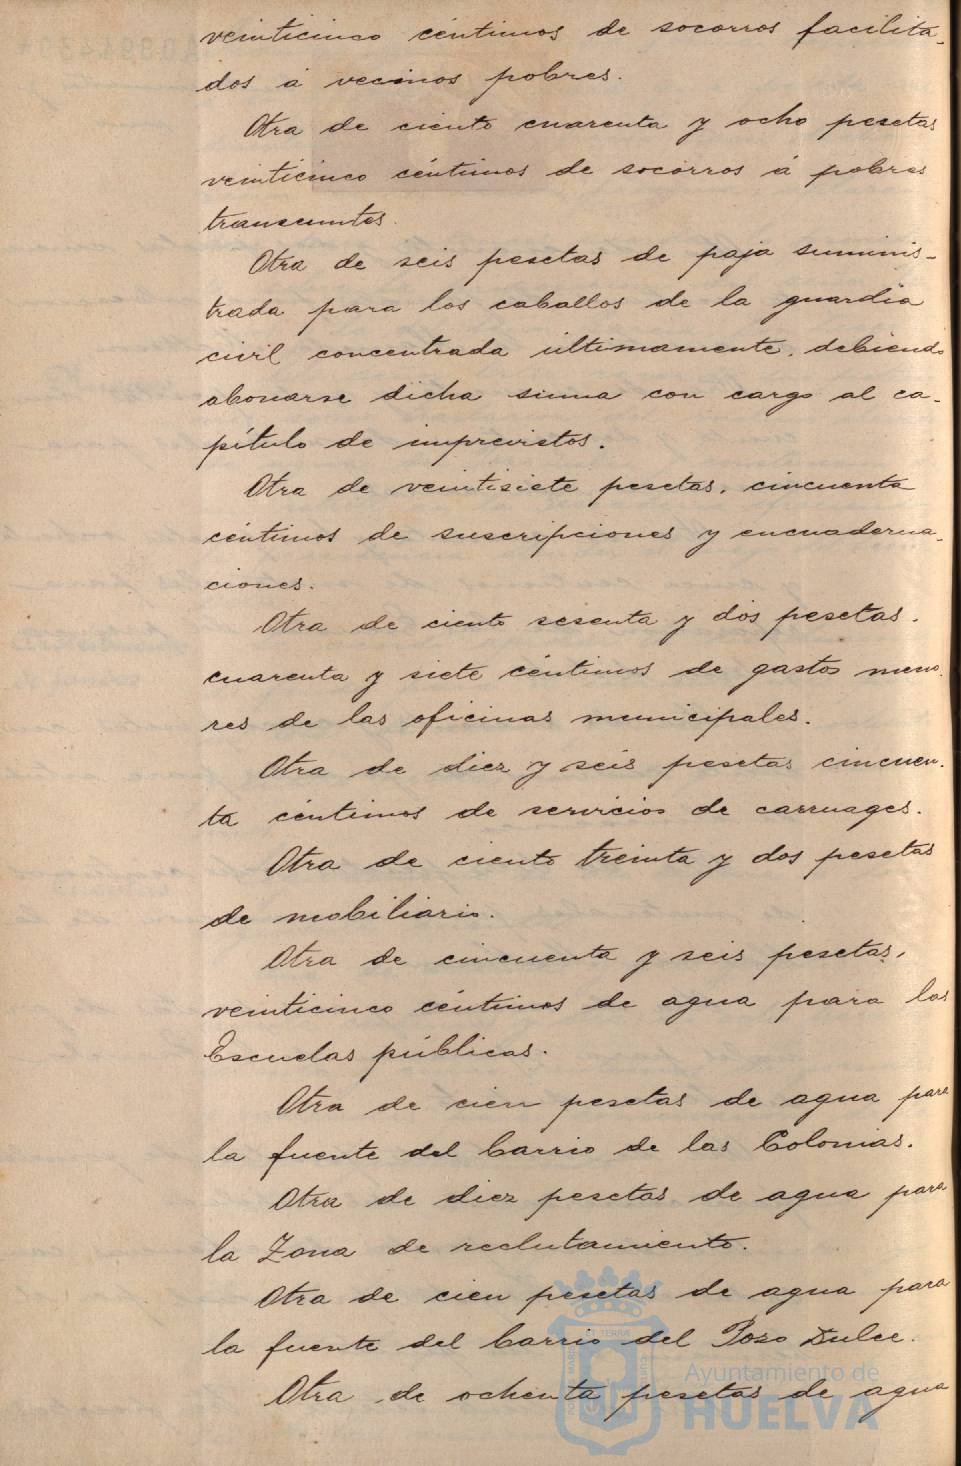 veinticinco céntimos de socorros facilita-
dos á vecinos pobres.
Otra de ciento cuarenta y ocho pesetas
veinticinco céntimos de socorros á pobres
transeuntes.
Otra de seis pesetas de paja suminis-
trada para los caballos de la guardia
civil concentrada últimamente, debiendo
abonarse dicha suma con cargo al ca-
pítulo de imprevistos.
Otra de veintisiete pesetas, cincuenta
céntimos de suscripciones y encuaderna-
ciones.
Otra de ciento sesenta y dos pesetas,
cuarenta y siete céntimos de gastos meno-
res de las oficinas municipales.
Otra de diez y seis pesetas cincuen-
ta céntimos de servicios de carruages.
Otra de ciento treinta y dos pesetas
de mobiliario.
Otra de cincuenta y seis pesetas,
veinticinco céntimos de agua para las
Escuelas públicas.
Otra de cien pesetas de agua para
la fuente del barrio de las Colonias.
Otra de diez pesetas de agua para
la Zona de reclutamiento.
Otra de cien pesetas de agua para
la fuente del barrio del Pozo Dulce.
Otra de ochenta pesetas de agua
Ayuntamiento de
HUELVA